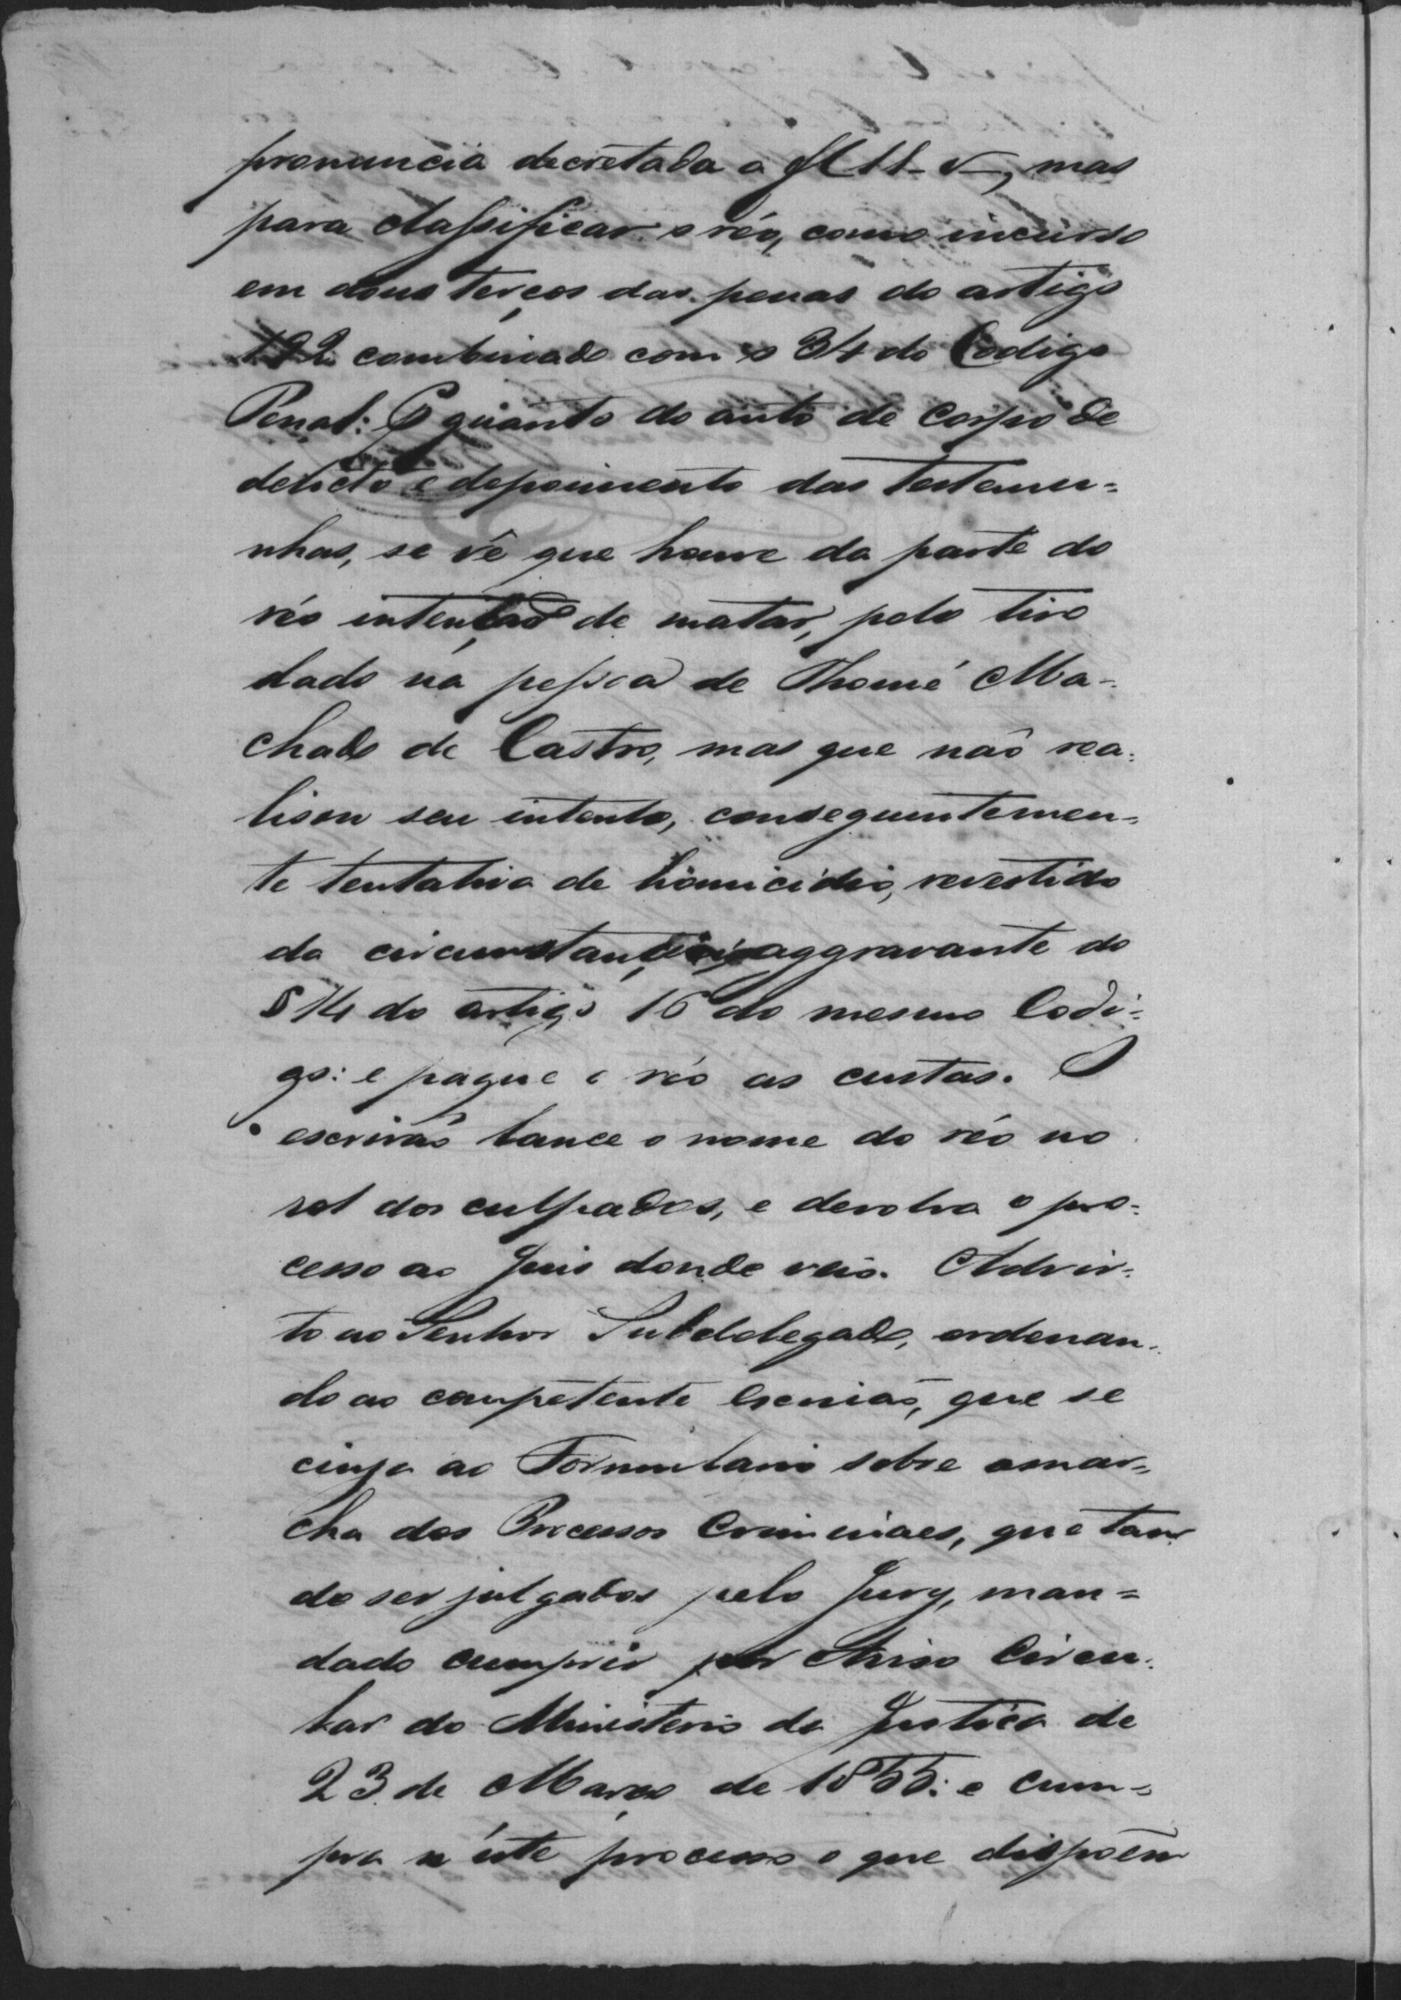 pronuncia decretada a fl 11 v, mas
para classificar o réo, como incurso
em dous terços das penas do artigo
192 combinado com o 34 do Codigo
Penal: Pr quanto do auto de corpo de
delicto e depoimento das testemu=
nhas, se vê que houve da parte do
réo intenção de matar, pelo tiro
dado na pessoa de Thomé Ma-
chado de Castro, mas que não rea-
lisou seu intento, conseguintemen-
te tentativa de homicidio, revestido
da circumstancia aggravante do
§ 14 do artigo 16 do mesmo Codi-
go: e pague o réo as custas. O
escrivão lance o nome do réo no
rol dos culpados, e devolva o pro-
cesso ao Juis donde veio. Advir-
to ao Senhor Subdelegado, ordenan-
do ao competente Escrivão, que se
cinja ao Formulario sobre a mar-
cha dos Processos Criminaes, que tem
de ser julgados pelo Jury, man=
dado cumprir por Aviso Circu-
lar do Ministerio da Justiça de
23 de Março de 1855: e cum-
pra n'éste processo o que dispoem